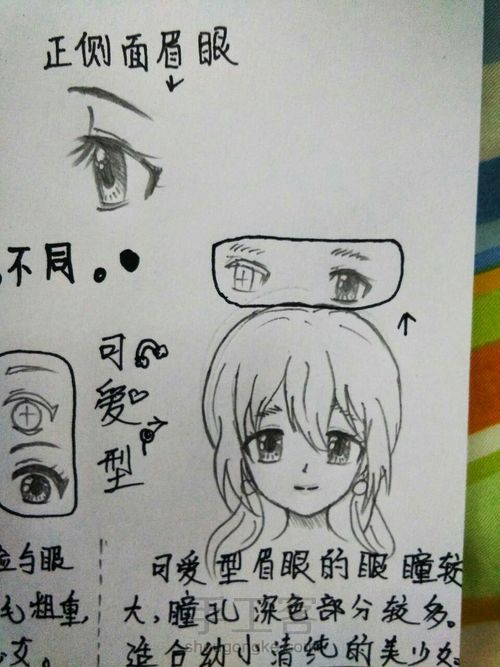 正侧面眉眼
不同。
可爱型
与眼
毛粗重,
女。
可爱型眉眼的眼瞳较
大,瞳孔深色部分较多。
适合幼小清纯的美少女
手工客
shougongke.com